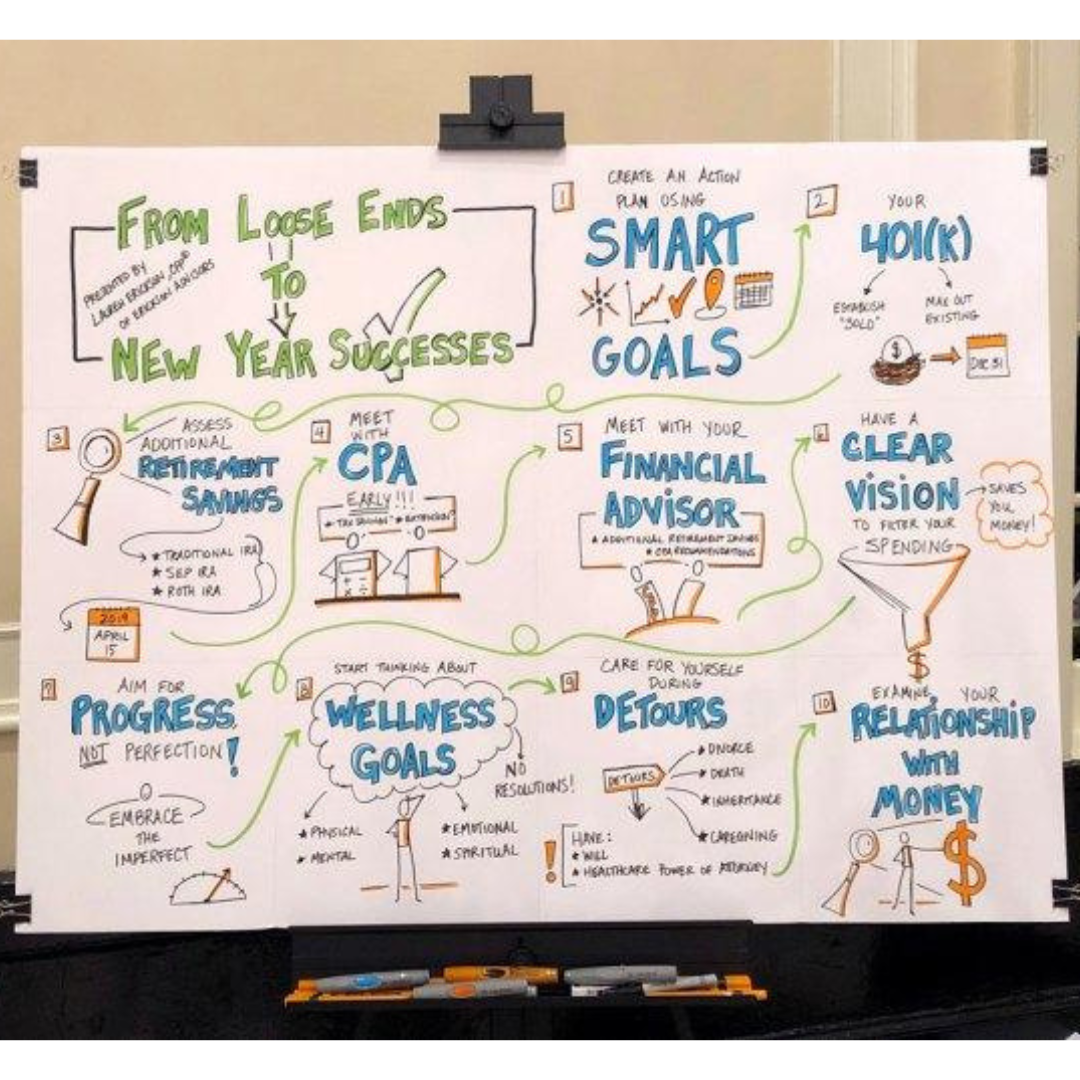 FROM LOOSE ENDS
TO
NEW YEAR SUCCESSES
PRESENTED BY
LAUREN ERICKSON, CPA®
OF ERICKSON ADVISORS
1
CREATE AN ACTION
PLAN USING
SMART
GOALS
2
YOUR
401(K)
ESTABLISH
"SOLO"
MAX OUT
EXISTING
$
DEC 31
3
ASSESS
ADDITIONAL
RETIREMENT
SAVINGS
★ TRADITIONAL IRA
★ SEP IRA
★ ROTH IRA
2019
APRIL
15
4
MEET
WITH
CPA
EARLY!!!
★ TAX SAVINGS ★ EXTENSION?
5
MEET WITH YOUR
FINANCIAL
ADVISOR
★ ADDITIONAL RETIREMENT SAVINGS
★ CPA RECOMMENDATIONS
6
HAVE A
CLEAR
VISION
TO FILTER YOUR
SPENDING
SAVES
YOU
MONEY!
$
7
AIM FOR
PROGRESS
NOT PERFECTION!
EMBRACE
THE
IMPERFECT
8
START THINKING ABOUT
WELLNESS
GOALS
NO
RESOLUTIONS!
★ PHYSICAL
★ MENTAL
★ EMOTIONAL
★ SPIRITUAL
9
CARE FOR YOURSELF
DURING
DETOURS
DETOURS
★ DIVORCE
★ DEATH
★ INHERITANCE
★ CAREGIVING
! HAVE:
★ WILL
★ HEALTHCARE POWER OF ATTORNEY
10
EXAMINE YOUR
RELATIONSHIP
WITH
MONEY
$